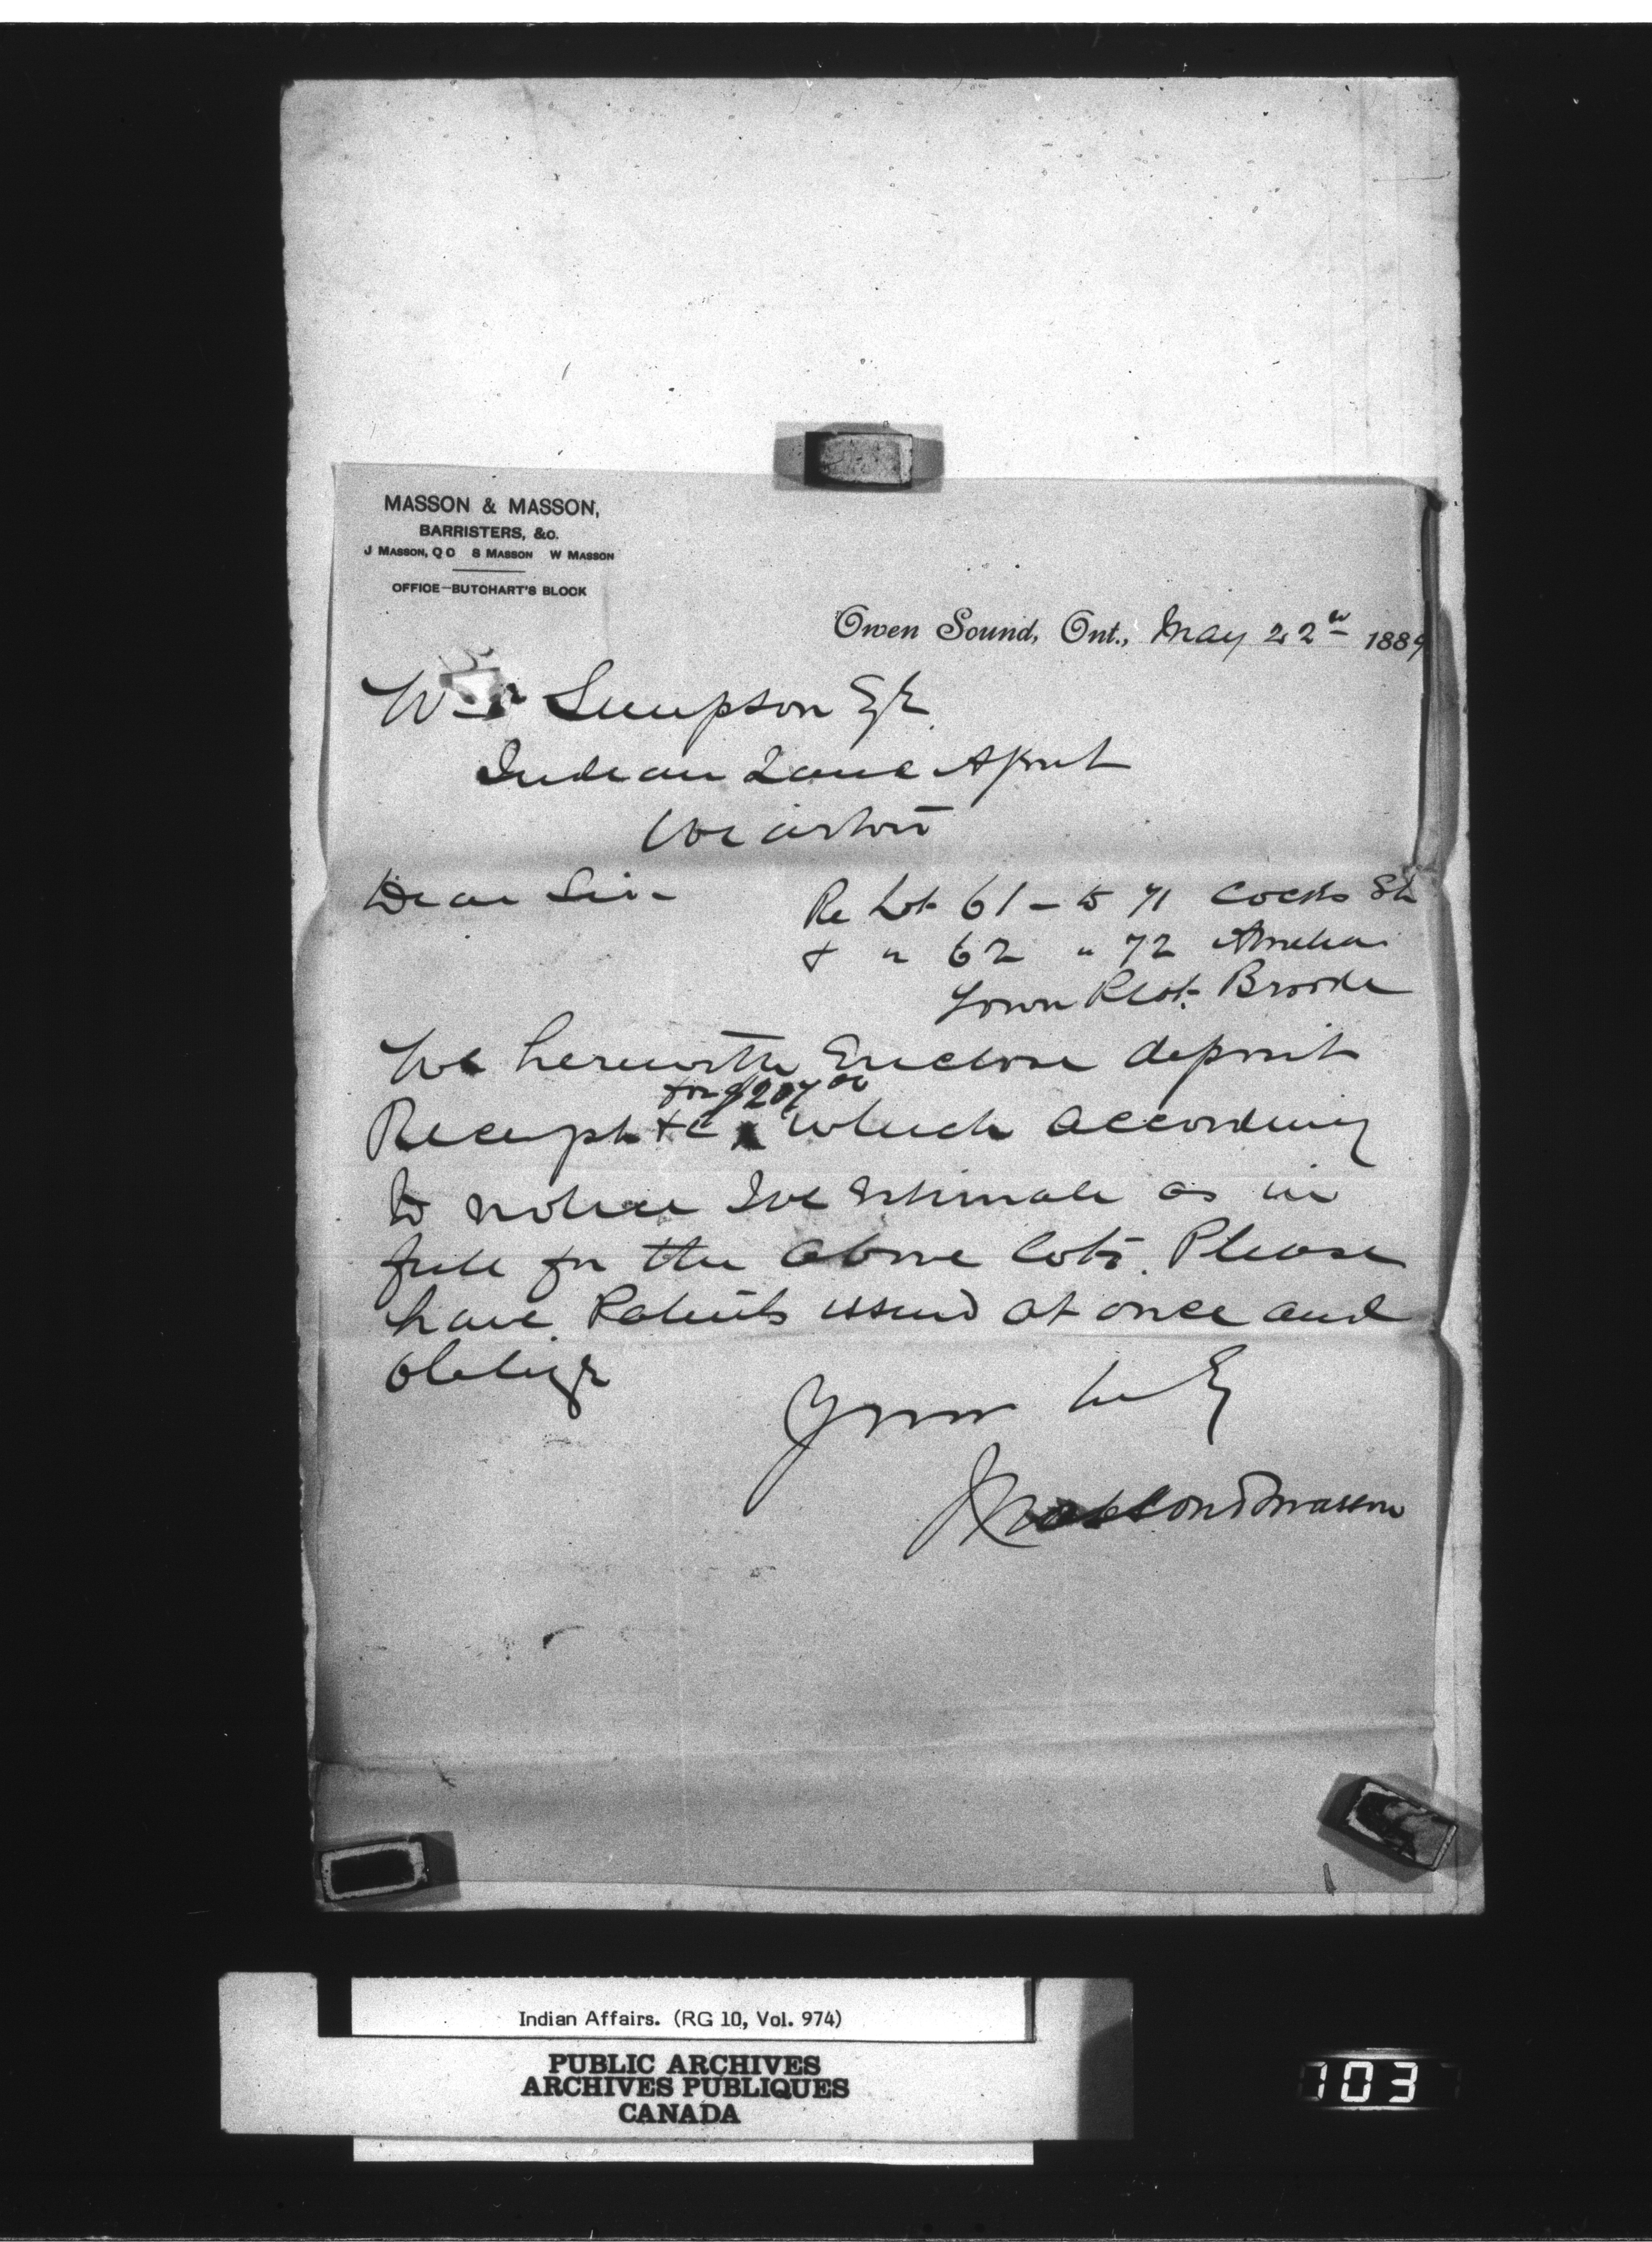 MASSON & MASSON,
BARRISTERS, &c.
J MASSON, Q C S MASSON W MASSON
OFFICE—BUTCHART'S BLOCK
Owen Sound, Ont., May 22nd 1889
Wm Simpson Esq
Indian Land Agent
Wiarton
Dear Sir-
Re Lot 61 - to 71 Cocks St
& " 62 " 72
Town Plot Brooke
We herewith Enclose deposit
for $207 00
Receipt &c which according
to notice we estimate as in
full for the above lots. Please
have Patents issued at once and
oblige
Yours truly
Masson & Masson
Indian Affairs. (RG 10, Vol. 974)
PUBLIC ARCHIVES
ARCHIVES PUBLIQUES
CANADA
103